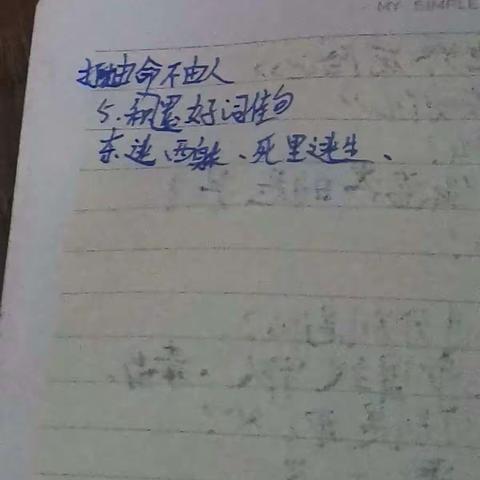 MY SIMPLE
由命不由人
5.积累好词佳句
东逃西躲、死里逃生、